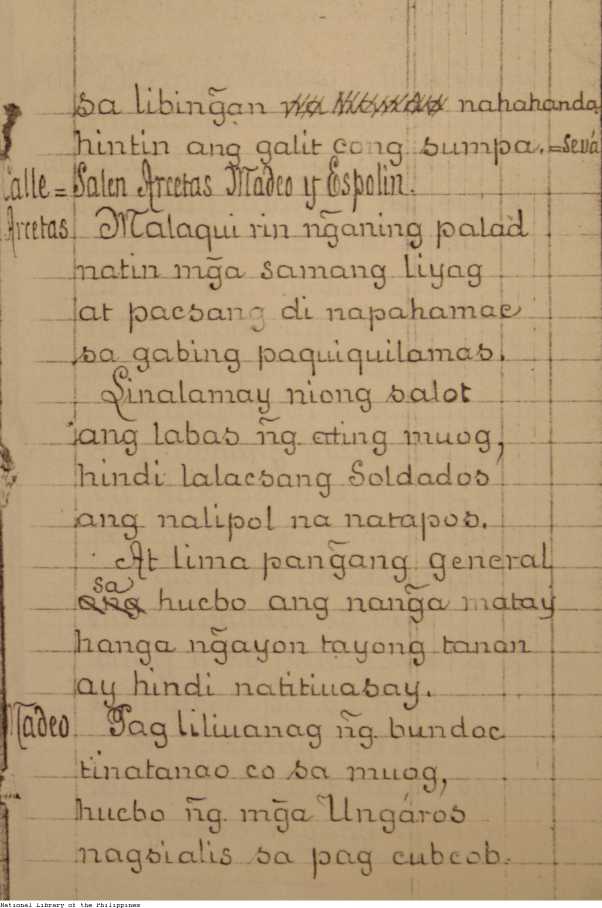 sa libing̃an nahahanda
hintin ang galit cong sumpa.=Sevá
Calle = Salen Arcetas Madeo y Espolin.
Arcetas Malaqui rin ng̃aning palad
natin mg̃a samang liyag
at pacsang di napahamac
sa gabing paquiquilamas.
Linalamay niong salot
ang labas ñg ating muog,
hindi lalacsang Soldados
ang nalipol na natapos.
At lima pang̃ang general
sa hucbo ang nang̃a matay
hanga ng̃ayon tayong tanan
ay hindi natitiuasay.
Madeo Pag liliuanag ñg bundoc
tinatanao co sa muog,
hucbo ñg mg̃a Ungáros
nagsialis sa pag cubcob.
National Library of the Philippines